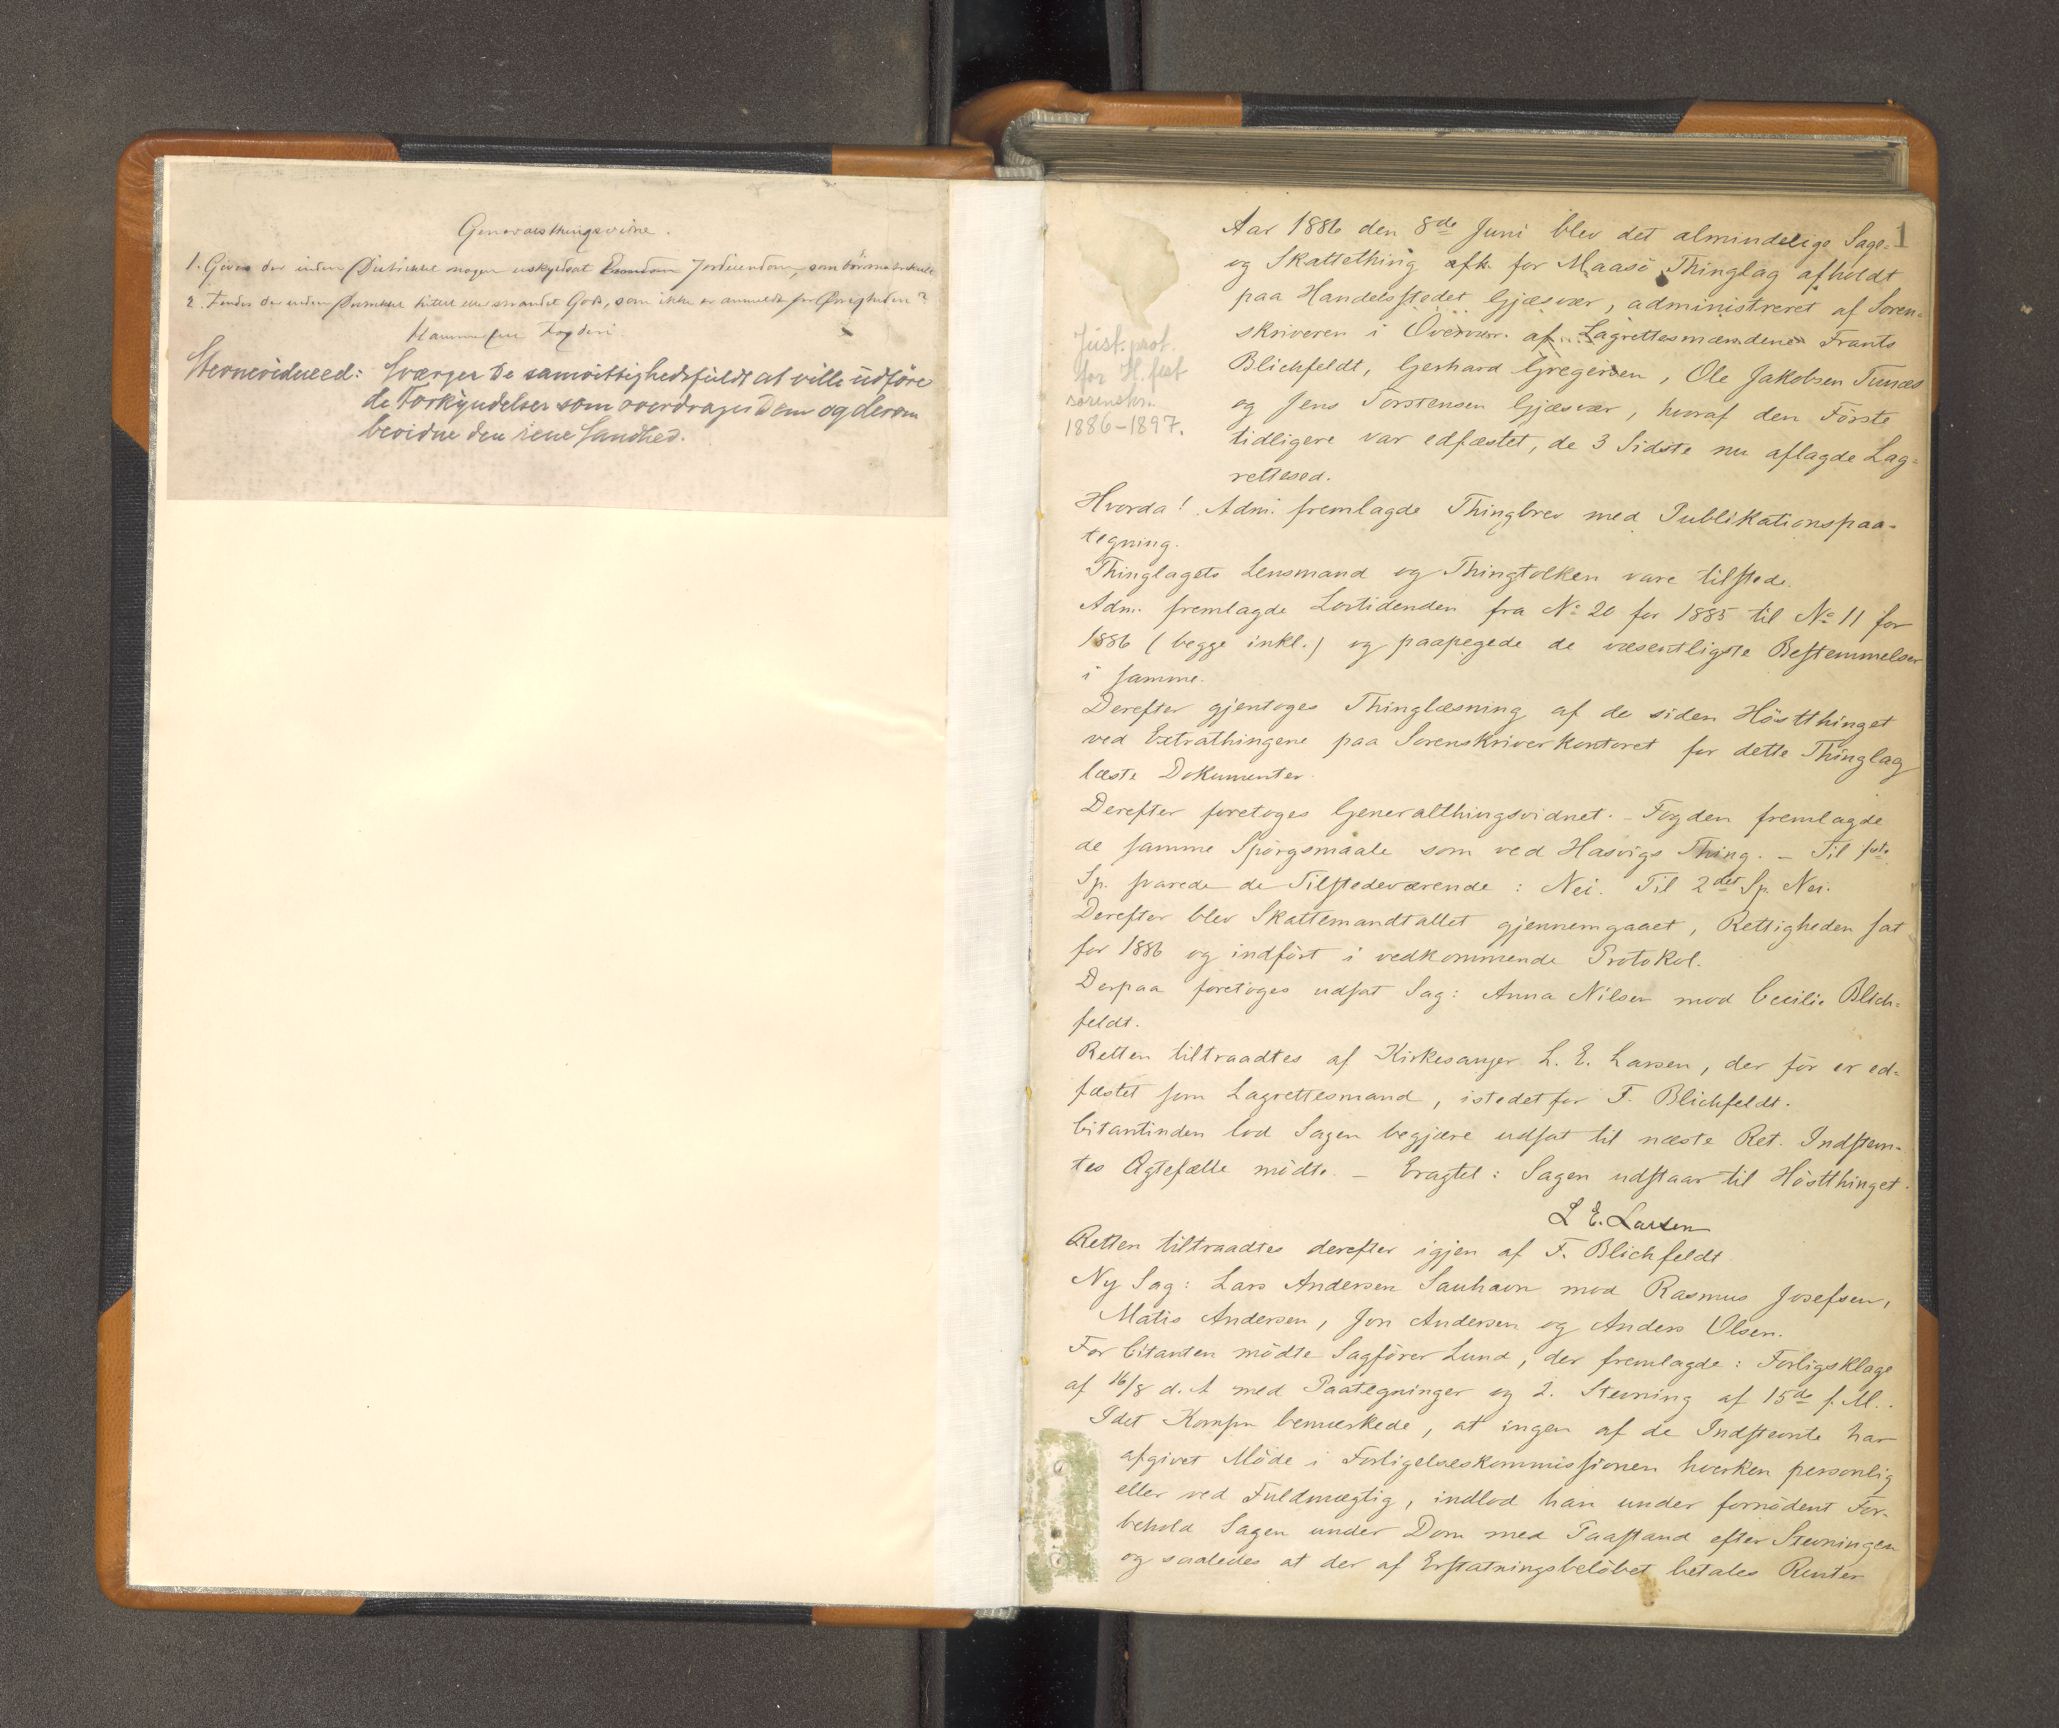 Generalsthingsvidne.
1. Gives der inden Distriktet nogen uskyldsat Eiendom Jordeiendom, som bör matrikul
2. Findes der inden Distriktet hittet eller strandet Gods, som ikke er anmeldt for Övrigheden?
Hammerfest Fogderi.
Stevnevidneed: Sværger De samvittighedsfüldt at ville üdföre
de Forkyndelser som overdrages Dem og derom
bevidne den rene Sandhed.
1
Just. prot.
for H.fest
sorenskr.
1886-1897.
Aar 1886 den 8de Juni blev det almindelige Sage-
og Skattething afh. for Maasö Thinglag afholdt
paa Handelsstedet Gjæsvær, administreret af Soren-
skriveren i Overvær af Lagrettesmændene Frants
Blichfeldt, Gerhard Gregersen, Ole Jakobsen Tunæs
og Jens Torstensen Gjæsvær, hvoraf den Förste
tidligere var edfæstet, de 3 Sidste nu aflagde Lag-
rettesed.
Hvorda! Adm. fremlagde Thingbrev med Publikationspaa-
tegning.
Thinglagets Lensmand og Thingtolken vare tilstede.
Adm. fremlagde Lovtidenden fra No 20 for 1885 til No 11 for
1886 (begge inkl.) og paapegede de væsentligste Bestemmelser
i samme.
Derefter gjentoges Thinglæsning af de siden Höstthinget
ved Extrathingene paa Sorenskriverkontoret for dette Thinglag
læste Dokumenter.
Derefter foretoges Generalthingsvidnet. - Fogden fremlagde
de samme Spörgsmaale som ved Hasvigs Thing. - Til 1ste
Sp. svarede de Tilstedeværende: Nei. Til 2det Sp. Nei.
Derefter blev Skattemandtallet gjennemgaaet, Rettigheden sat
for 1886 og indfört i vedkommende Protokol.
Derpaa foretoges udsat Sag: Anna Nilsen mod Cecilie Blich-
feldt.
Retten tiltraadtes af Kirkesanger L. E. Larsen, der för er ed-
fæstet som Lagrettesmand, istedetfor F. Blichfeldt.
Citantinden lod Sagen begjære udsat til næste Ret. Indstevn-
tes Ægtefælle mödte. - Eragtet: Sagen udstaar til Höstthinget.
L E. Larsen
Retten tiltraadtes derefter igjen af F. Blichfeldt.
Ny Sag: Lars Andersen Sauhavn mod Rasmus Josefsen,
Matis Andersen, Jon Andersen og Anders Olsen.
For Citanten mödte Sagförer Lund, der fremlagde: Forligsklage
af 16/8 d. A med Paategninger og 2. Stevning af 15de f. M..
Idet Kompn bemærkede, at ingen af de Indstevnte har
afgivet Möde i Forligelseskommissionen hverken personlig
eller ved Fuldmægtig, indlod han under fornödent For-
behold Sagen under Dom med Paastand efter Stevningen
og saaledes at der af Erstatningsbelöbet betales Renter